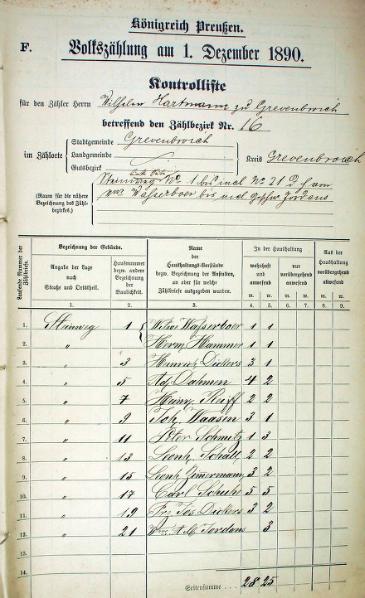 Königreich Preußen.
F. Volkszählung am 1. Dezember 1890.
Kontrolliste
für den Zähler Herrn Wilhelm Hartmann zu Grevenbroich
betreffend den Zählbezirk Nr. 16
Stadtgemeinde Grevenbroich
im Zählorte Landgemeinde Kreis Grevenbroich
Gutsbezirk
Steinweg No. 1 bis incl No 21 d. h. am
(Raum für die nähere Bezeichnung des Zählbezirks.) Wasserboer bis incl Jordans
Laufende Nummer der Zählbriefe.
Bezeichnung der Gebäude.
Angabe der Lage nach Straße und Ortstheil.
Hausnummer bezw. andere Bezeichnung der Baulichkeit.
Name der Haushaltungs-Vorstände bezw. Bezeichnung der Anstalten, an oder für welche Zählbriefe ausgegeben wurden.
In der Haushaltung
wohnhaft und anwesend
nur vorübergehend anwesend
Aus der Haushaltung vorübergehend abwesend
m. w. m. w. m. w.
1. 2. 3. 4. 5. 6. 7. 8. 9.
1. Steinweg 1 Wasserboer 1 1
2. " Herm. Hammer 1 1
3. " 3 Heinrich Dickers 3 1
4. " 5 Adf. Dahmen 4 2
5. " 7 Heinr. Reiff 2 2
6. " 9 Joh. Waasen 3 1
7. " 11 Peter Schmitz 1 3
8. " 13 Leonh. Schall 2 2
9. " 15 Leonh. Zimmermann 3 2
10. " 17 Carl Schulte 5 5
11. " 19 Frz Jos Dickers 3 2
12. " 21 Jordans 3
13.
14.
Seitensumme 28 25